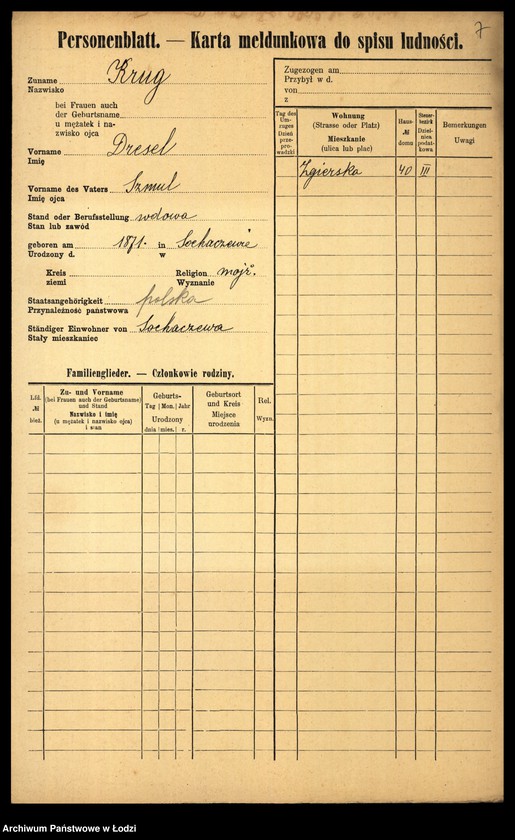 7
Personenblatt. — Karta meldunkowa do spisu ludności.
Zuname Krug
Nazwisko
bei Frauen auch
der Geburtsname
u mężatek i na-
zwisko ojca
Vorname Dresel
Imię
Vorname des Vaters Szmul
Imię ojca
Stand oder Berufsstellung wdowa
Stan lub zawód
geboren am 1871. in Sochaczewie
Urodzony d. w
Kreis Religion mojż.
ziemi Wyznanie
Staatsangehörigkeit polska
Przynależność państwowa
Ständiger Einwohner von Sochaczewa
Stały mieszkaniec
Familienglieder. — Członkowie rodziny.
Lfd. № bież.
Zu- und Vorname
(bei Frauen auch der Geburtsname)
und Stand
Nazwisko i imię
(u mężatek i nazwisko ojca)
i stan
Geburts-
Tag Mon. Jahr
Urodzony
dnia mies. r.
Geburtsort
und Kreis
Miejsce
urodzenia
Rel.
Wyzn.
Zugezogen am
Przybył w d.
von
z
Tag des
Um-
zuges
Dzień
prze-
prowadzki
Wohnung
(Strasse oder Platz)
Mieszkanie
(ulica lub plac)
Haus-
№
domu
Steuer-
bezirk
Dziel-
nica
podat-
kowa
Bemerkungen
Uwagi
Zgierska 40 III
Archiwum Państwowe w Łodzi